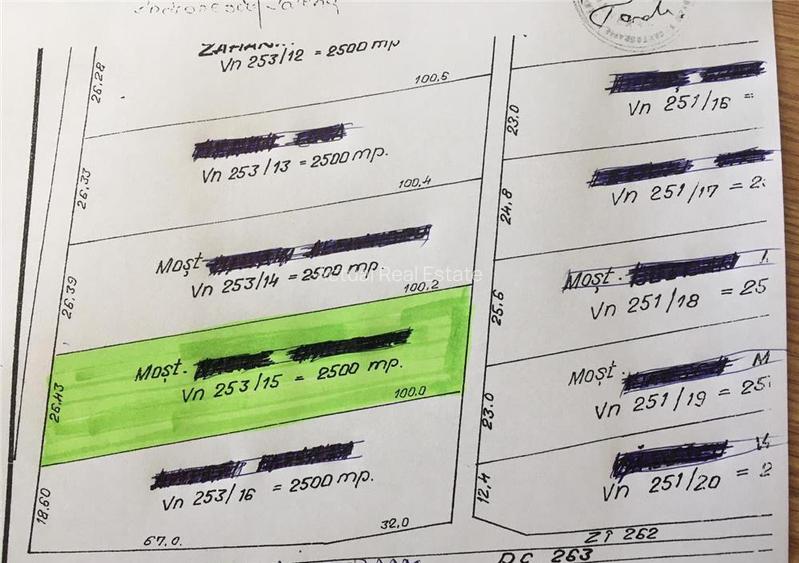 ZAHAN...
Vn 253/12 = 2500 mp
26.28
100.6
Vn 253/13 = 2500 mp.
26.33
100.4
Moșt.
Vn 253/14 = 2500 mp.
26.39
Real Estate
100.2
Moșt.
Vn 253/15 = 2500 mp.
26.43
100.0
Vn 253/16 = 2500 mp.
18.60
67.0.
32.0
Vn 251/16 =
23.0
Vn 251/17 = 2
24.8
Moșt.
Vn 251/18 = 25
25.6
Moșt. M
Vn 251/19 = 25
23.0
Vn 251/20 = 2
12.4
ZT 262
DC 263